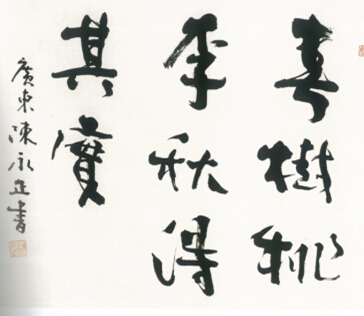 春樹桃
李秋得
其實
廣東陳永正書